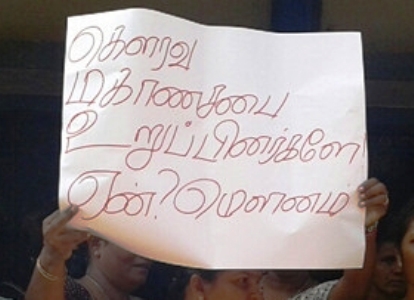 கௌரவ
மகாணசபை
உறுப்பினர்களே!
ஏன்? மௌனம்